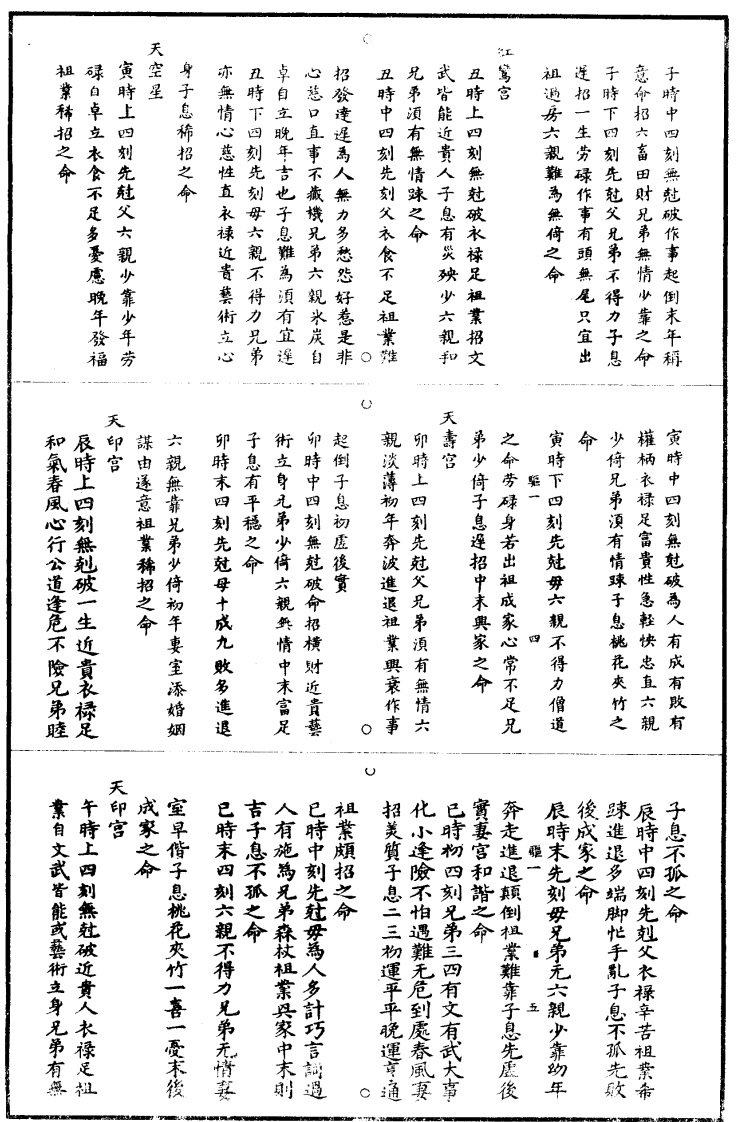 子時中四刻無尅破作事起倒末年稱
意命招六畜田財兄弟無情少靠之命
子時下四刻先尅父兄弟不得力子息
遲招一生勞碌作事有頭無尾只宜出
祖過房六親難為無倚之命
紅鸞宮
丑時上四刻無尅破衣禄足祖業招文
武皆能近貴人子息有災殃少六親和
兄弟須有無情踈之命
丑時中四刻先刻父衣食不足祖業難
招發達遲為人無力多愁怨好惹是非
心慈口直事不藏機兄弟六親氷炭自
卓自立晚年吉也子息難為須有宜遲
丑時下四刻先刻母六親不得力兄弟
亦無情心慈性直衣禄近貴藝術立心
身子息稀招之命
天空星
寅時上四刻先尅父六親少靠少年勞
碌自卓立衣食不足多憂慮晚年發福
祖業稀招之命
寅時中四刻無尅破為人有成有敗有
權柄衣禄足富貴性急軽快忠直六親
少倚兄弟須有情踈子息桃花夾竹之
命
寅時下四刻先尅母六親不得力僧道
驅一
四
之命勞碌身若出祖成家心常不足兄
弟少倚子息遲招中末興家之命
天壽宮
卯時上四刻先尅父兄弟須有無情六
親淡薄初年奔波進退祖業興衰作事
起倒子息初虛後實
卯時中四刻無尅破命招横財近貴藝
術立身兄弟少倚六親無情中末富足
子息有平穩之命
卯時末四刻先尅母十成九敗多進退
六親無靠兄弟少倚初年妻室添婚姻
謀由遂意祖業稀招之命
天印宮
辰時上四刻無尅破一生近貴衣禄足
和氣春風心行公道逢危不險兄弟睦
子息不孤之命
辰時中四刻先尅父衣禄辛苦祖業希
踈進退多端脚忙手亂子息不孤先敗
後成家之命
辰時末先刻母兄弟无六親少靠幼年
驅一
五
奔走進退顛倒祖業難靠子息先虛後
實妻宮和諧之命
巳時初四刻兄弟三四有文有武大事
化小逢險不怕遇難无危到處春風妻
招美質子息二三初運平平晚運亨通
祖業頗招之命
巳時中刻先尅母為人多計巧言詞過
人有施為兄弟森杖祖業吳家中末則
吉子息不孤之命
巳時末四刻六親不得力兄弟无情妻
室早偕子息桃花夾竹一喜一憂末後
成家之命
天印宮
午時上四刻無尅破近貴人衣禄足祖
業自文武皆能或藝術立身兄弟有無